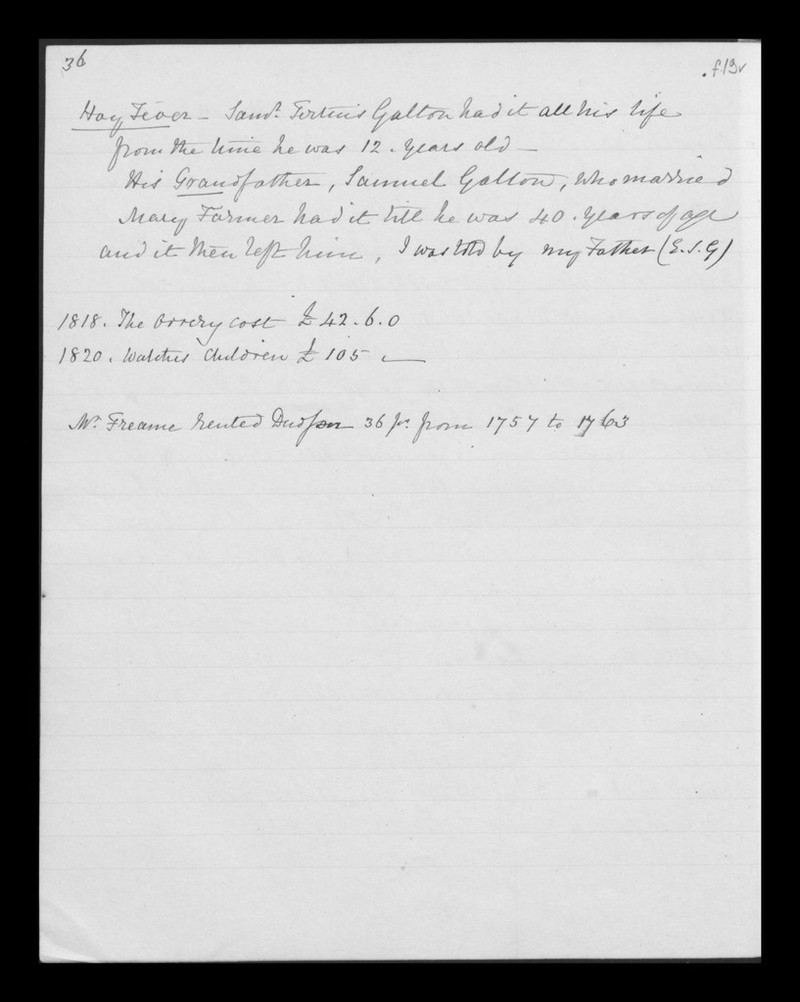 36
f13v
Hay Fever - Saml. Tertius Galton had it all his life
from the time he was 12. years old -
His Grandfather, Samuel Galton, who married
Mary Farmer had it till he was 40. years of age
and it then left him, I was told by my Father (E.S.G)
1818. The Orrery cost £42.6.0
1820. Watches Children £105 . —
Mr. Freame rented Dudson 36 pr. from 1757 to 1763